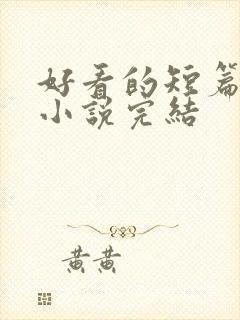 好看的短篇
小說完結
黄黄